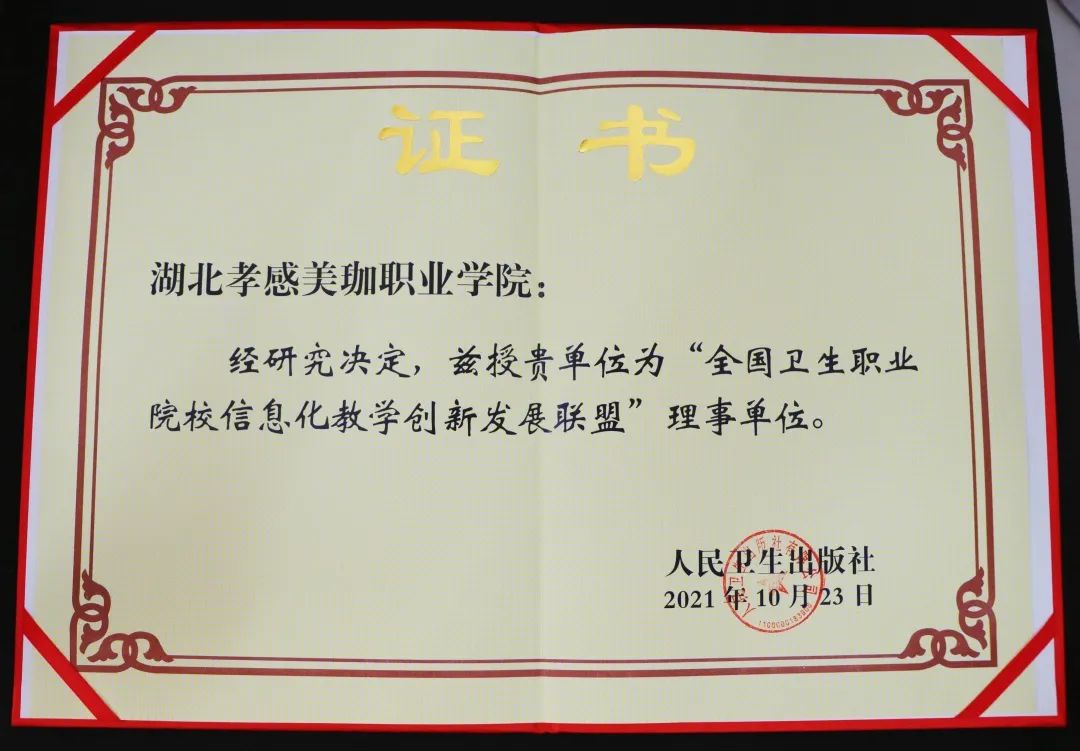 证书
湖北孝感美珈职业学院：
经研究决定，兹授贵单位为“全国卫生职业
院校信息化教学创新发展联盟”理事单位。
人民卫生出版社
2021 年 10 月 23 日